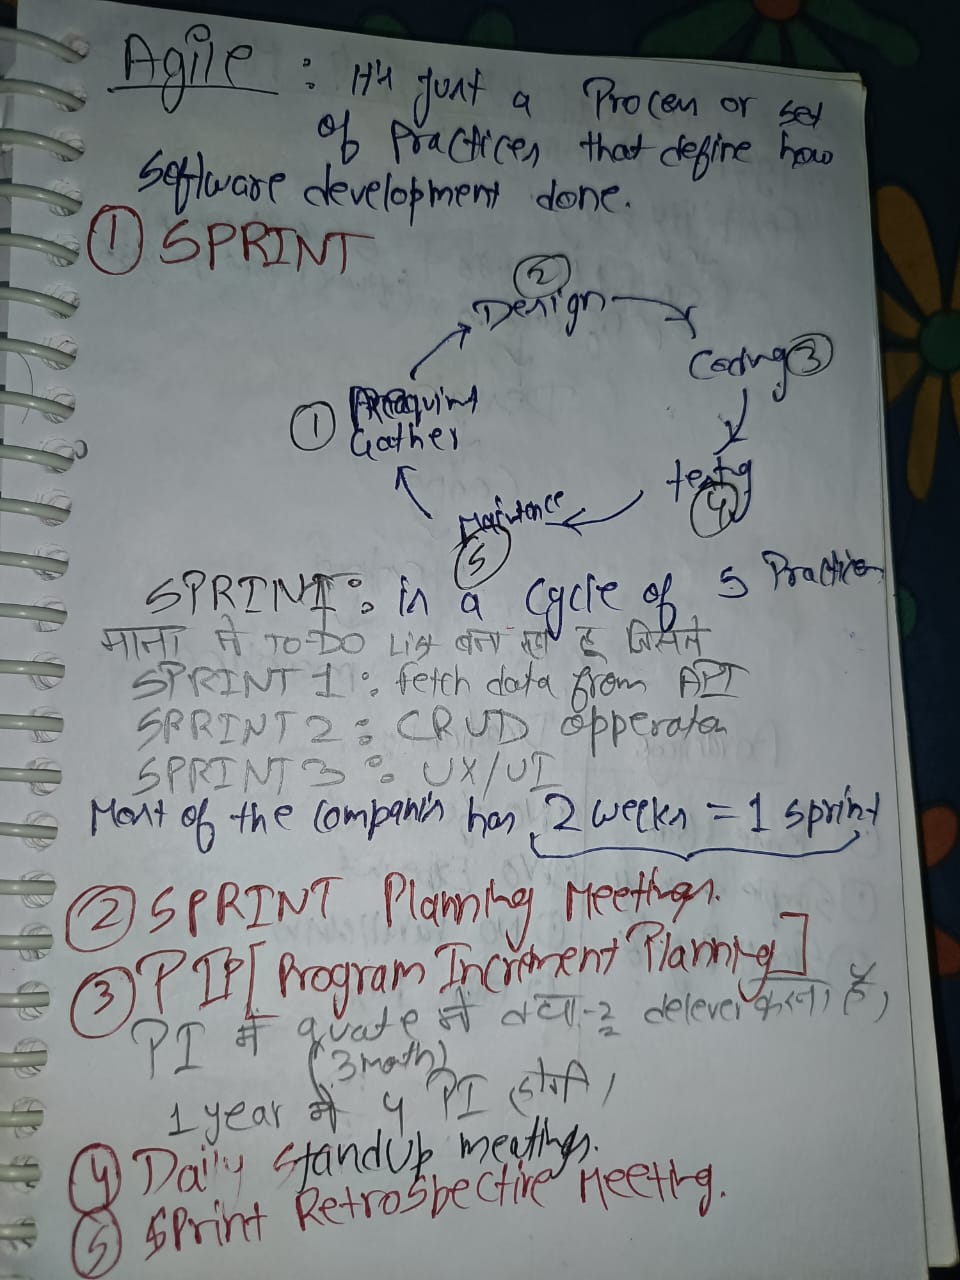 Agile : It's Just a Process or set
of Practices that define how
Software development done.
① SPRINT
② Design
Coding ③
① Requirint
Gather
testg
④
Maintence
⑤
SPRINT : is a Cycle of 5 Practices
माना मै TO-DO List बना रहा हू जिसमे
SPRINT 1 : fetch data from API
SPRINT 2 : CRUD opperaton
SPRINT 3 : UX/UI
Most of the Companis has 2 weeks = 1 sprint
② SPRINT Planning Meetings.
③ PIP [Program Increment Planning]
PI में quate में क्या-2 delever करना है,
(3 math)
1 year मे 4 PI होगी,
④ Daily StandUp meatings.
⑤ Sprint Retrospective Meeting.